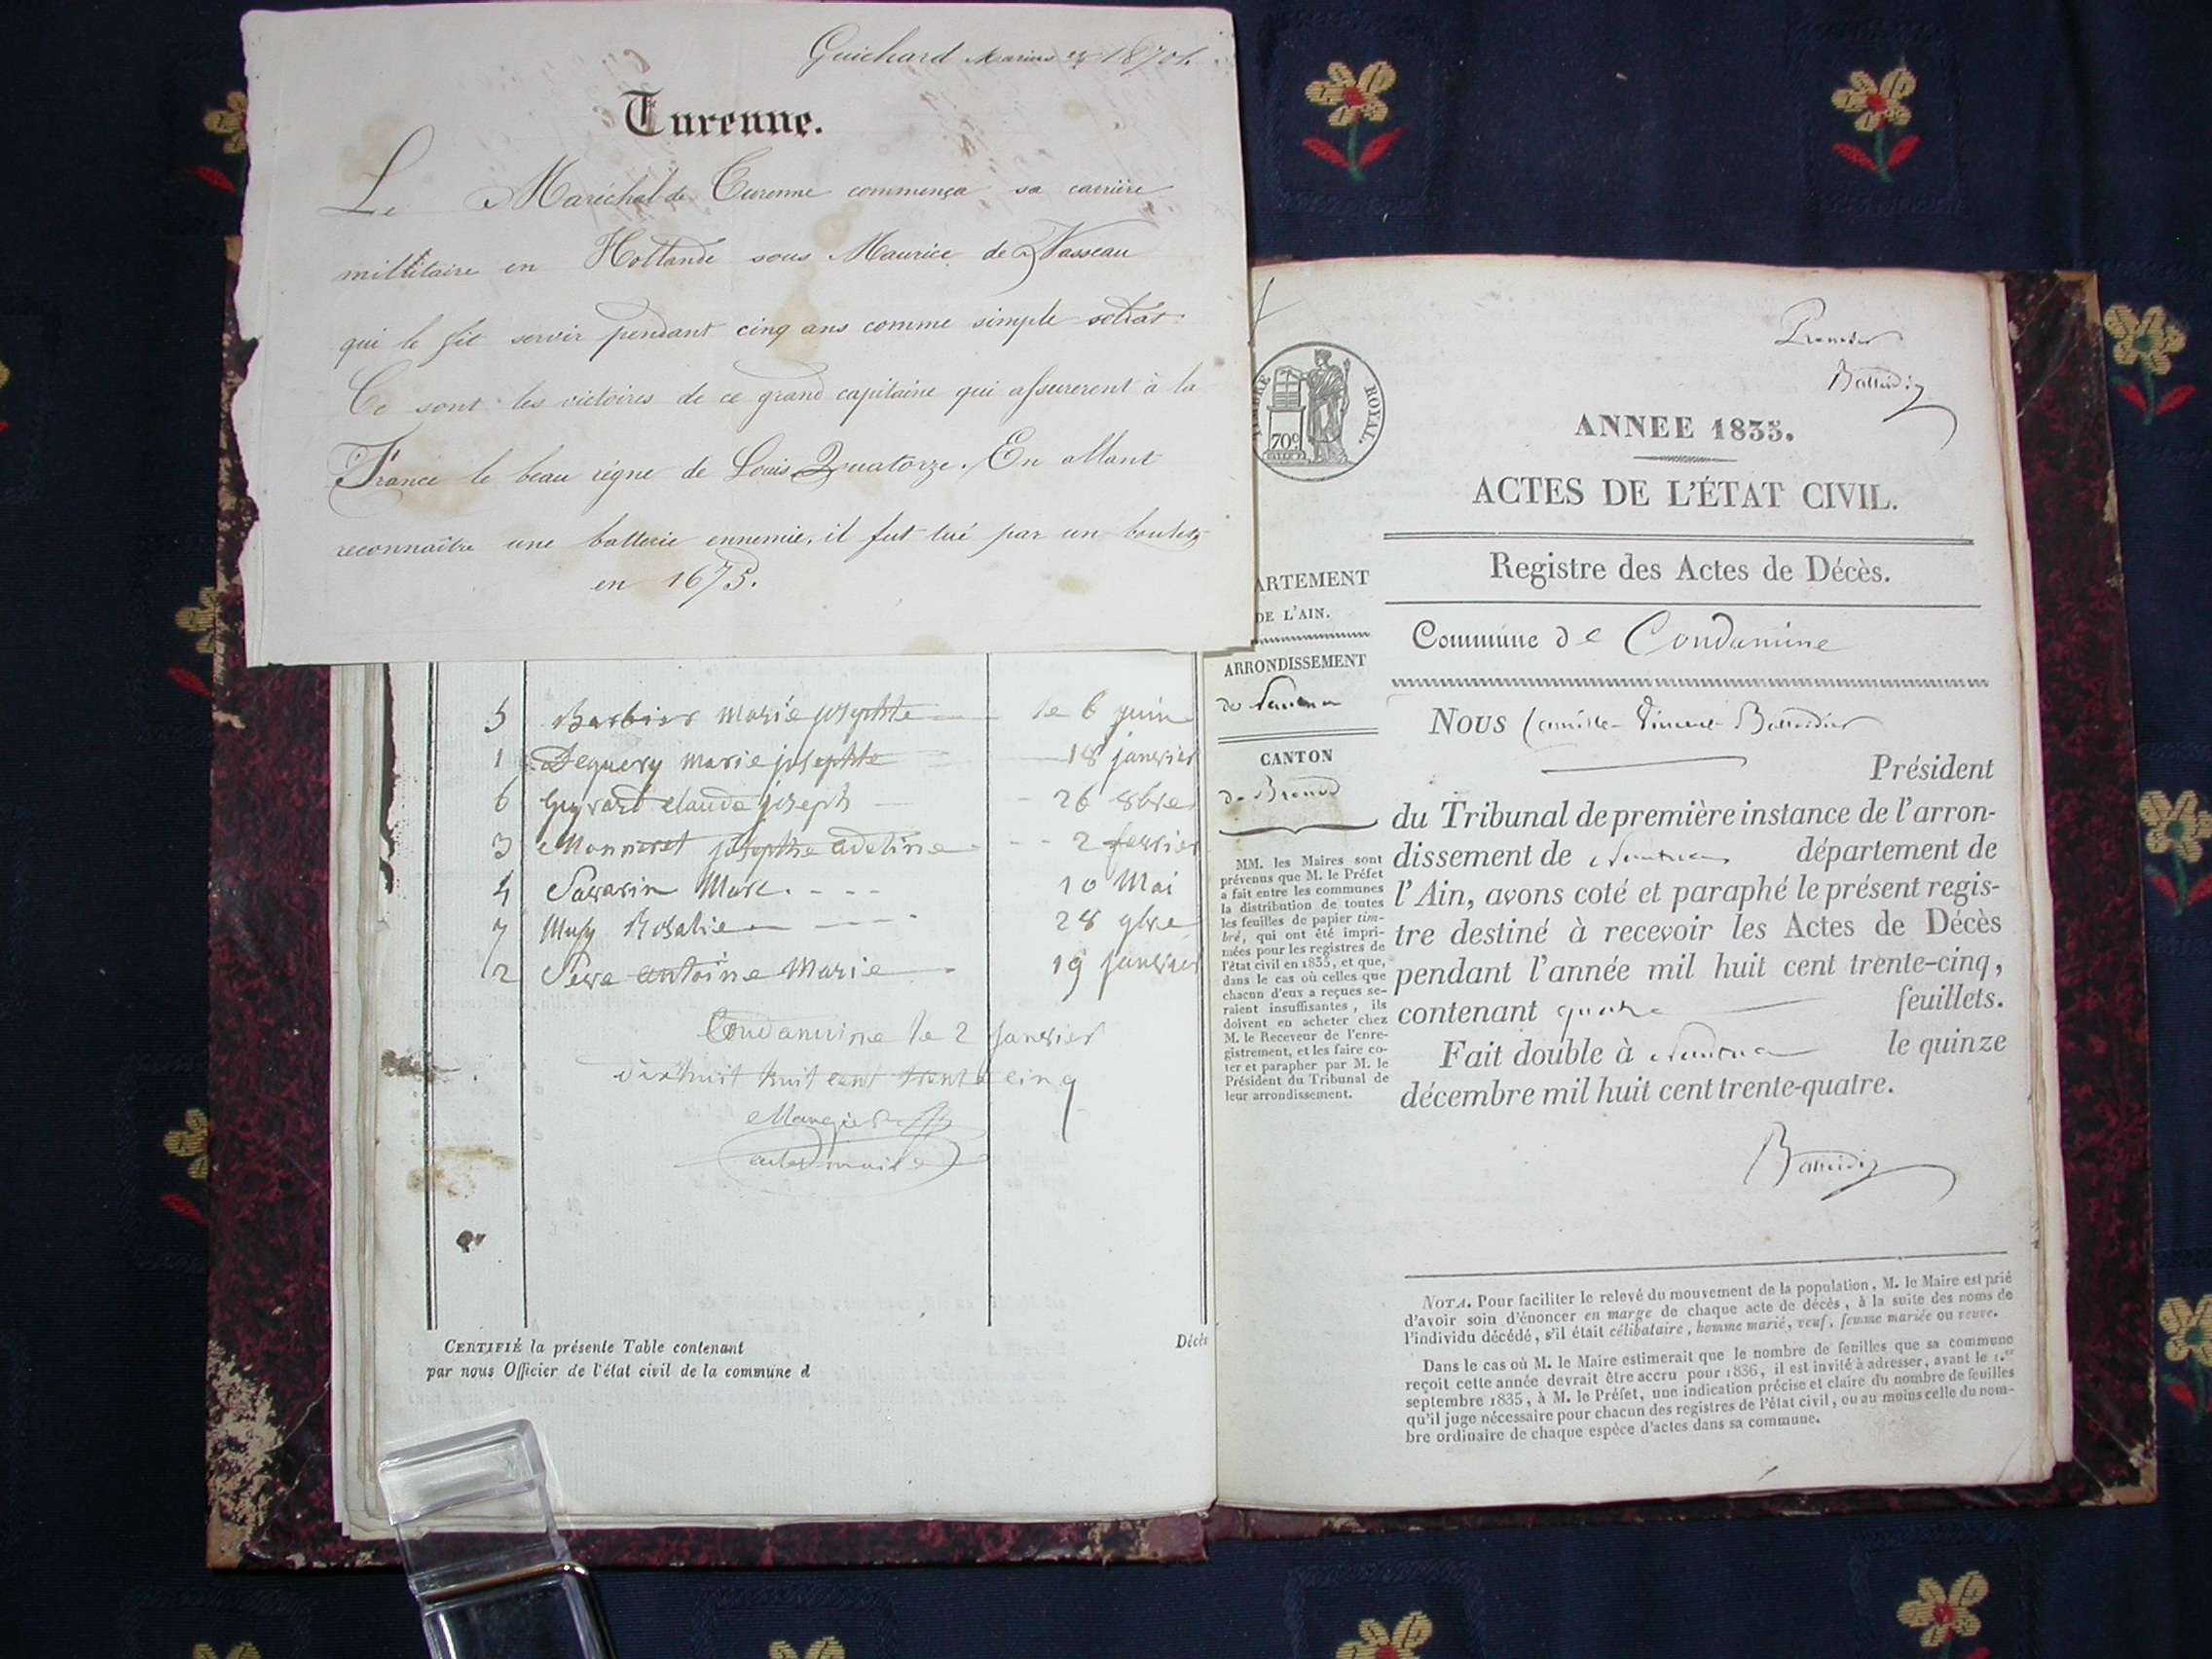 Guichard Marius
Turenne.
Le Maréchal de Turenne commença sa carrière
millitaire en Hollande sous Maurice de Nasseau
qui le fit servir pendant cinq ans comme simple soldat
Ce sont les victoires de ce grand capitaine qui assurerent à la
France le beau règne de Louis Quatorze. En allant
reconnaître une batterie ennemie, il fut tué par un boulet
en 1675.
5 Barbier Marie josephte le 6 juin
1 Marie josephte 18 janvier
6 claude joseph 26 8bre
3 Monneret josephte adeline 2 fevrier
4 Savarin Marc. 10 Mai
7 Musy Rosalie 28 9bre
2 antoine Marie 19 janvier
Condamine le 2 janvier
huit cent trente cinq
maire
CERTIFIÉ la présente Table contenant
Décès
par nous Officier de l'état civil de la commune d
TIMBRE ROYAL.
70c
ARTEMENT
DE L'AIN.
ARRONDISSEMENT
de Nantua
CANTON
de Brenod
MM. les Maires sont
prévenus que M. le Préfet
a fait entre les communes
la distribution de toutes
les feuilles de papier tim-
bré, qui ont été impri-
mées pour les registres de
l'état civil en 1835, et que,
dans le cas où celles que
chacun d'eux a reçues se-
raient insuffisantes, ils
doivent en acheter chez
M. le Receveur de l'enre-
gistrement, et les faire co-
ter et parapher par M. le
Président du Tribunal de
leur arrondissement.
Premier
ANNEE 1835.
ACTES DE L'ÉTAT CIVIL.
Registre des Actes de Décès.
Commune de Condamine
Nous Camille Vincent
Président
du Tribunal de première instance de l'arron-
dissement de Nantua département de
l'Ain, avons coté et paraphé le présent regis-
tre destiné à recevoir les Actes de Décès
pendant l'année mil huit cent trente-cinq,
contenant quatre feuillets.
Fait double à Nantua le quinze
décembre mil huit cent trente-quatre.
NOTA. Pour faciliter le relevé du mouvement de la population, M. le Maire est prié
d'avoir soin d'énoncer en marge de chaque acte de décès, à la suite des noms de
l'individu décédé, s'il était célibataire, homme marié, veuf, femme mariée ou veuve.
Dans le cas où M. le Maire estimerait que le nombre de feuilles que sa commune
reçoit cette année devrait être accru pour 1836, il est invité à adresser, avant le 1.er
septembre 1835, à M. le Préfet, une indication précise et claire du nombre de feuilles
qu'il juge nécessaire pour chacun des registres de l'état civil, ou au moins celle du nom-
bre ordinaire de chaque espèce d'actes dans sa commune.